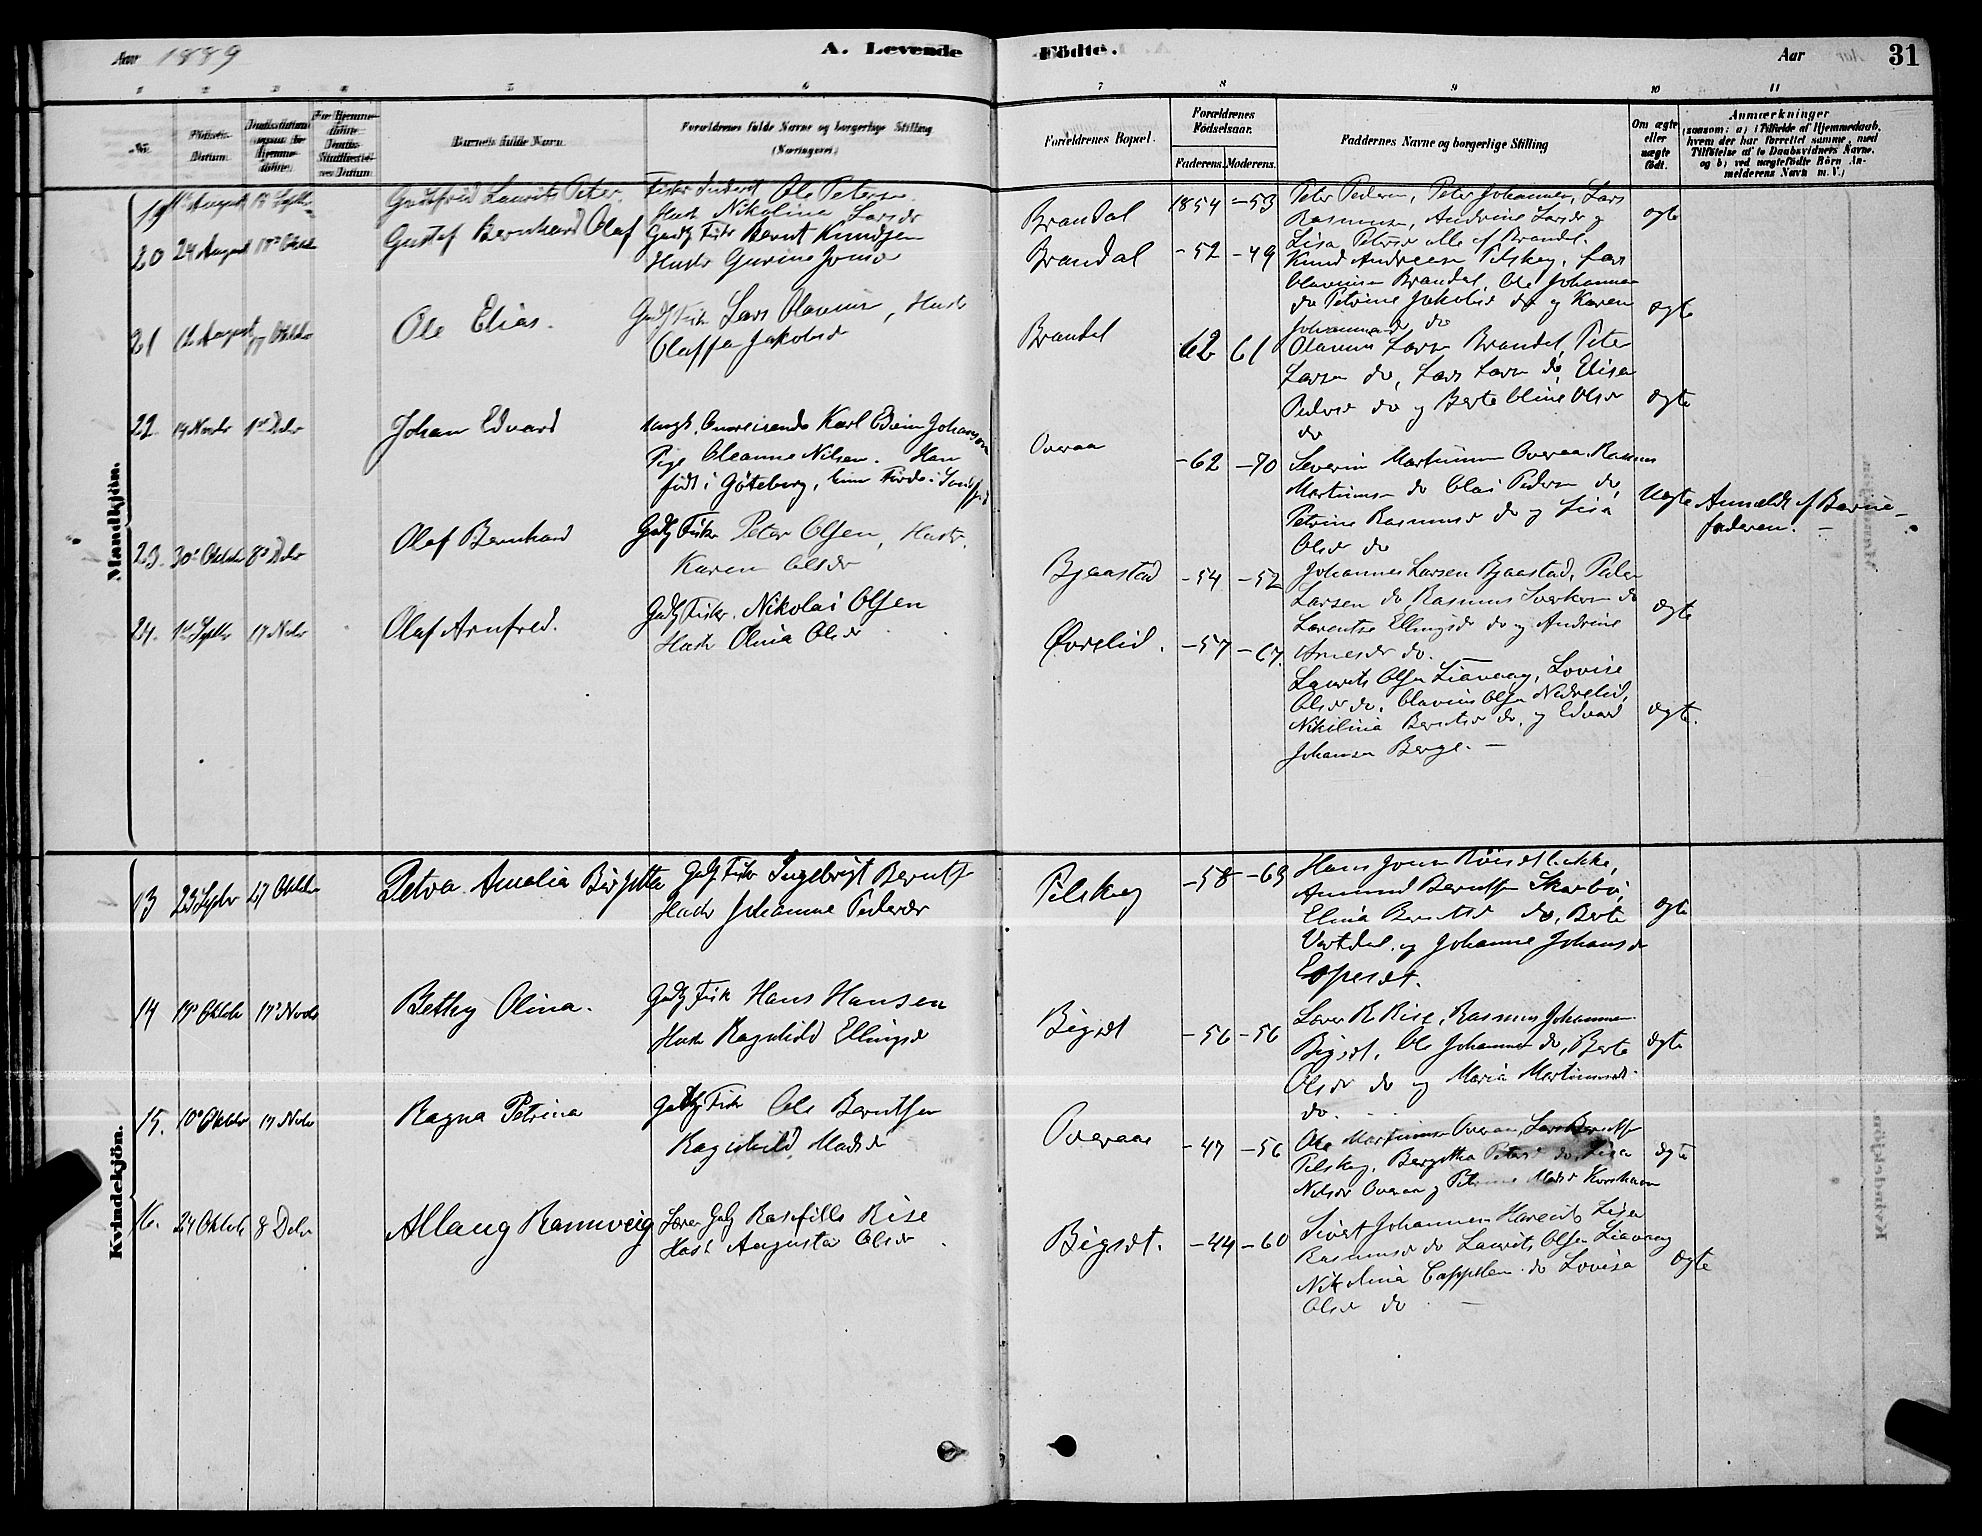 Aar 1889
A. Levende
Födte.
Aar
31
1 2 3 4 5 6 7 8 9 10 11
No.
Födsels-
Datum.
Barnets fulde Navn.
Forældrenes fulde Navne og borgerlige Stilling
(Næringsvei)
Forældrenes Bopæl.
Forældrenes
Fødselsaar.
Faderens. Moderens.
Faddernes Navne og borgerlige Stilling
Om ægte
eller
uægte
født.
Anmærkninger
(saasom: a) i Tilfælde af Hjemmedaab,
hvem der har forrettet samme, med
Tilføielse af to Daabsvidners Navne.
og b) ved uægtefödte Börn An-
melderens Navn m. V.)
Mandkjön.
19 August
Laurits Peter
Ole Petersen
Hustr Nikolina Larsdr
Brandal
1854 -53
Peter Pedersen, Peter Johannesen, Lars
Rasmussen, Andrine Larsdr og
Lisa Petersdr alle af Brandal.
ægte
20 24 August Oktbr
Gustaf Bernhard Olaf
Gaardbr Fisker Bernt Knudsen
Hustr Gurine Jonsdr
Brandal
-52 -49
Knud Andreesen Pilskog, Lars
Olavusen Brandal, Ole Johannesen
do Petrine Jakobsdr do og Karen
Johannesdr do
ægte
21 12 August Oktbr
Ole Elias.
Lars Olavusen, Hustr
Jakobsdr
Brandal
62 61
Olavus Larsen Brandal, Peter
Larsen do, Lars Larsen do, Elisa
Pedersdr do og Berte Oline Olsdr
do
ægte
22. 14 Novbr 1st Debr
Johan Edvard
Ungk. Omreisende Karl Edvin Johanson
Pige Oleanne Nilsen. Han
født i Göteborg, hun Førde i Søndfjord
Overaa
-62 -70
Severin Martinusen Overaa, Rasmus
Martinusen do Olai Pedersen do,
Petrine Rasmusdr do og Lisa
Olsdr do
Uægte
Anmeldt af Barne-
faderen. —
23. 30 Oktbr 8 Debr
Olaf Bernhard
Gaardbr Fisker Peter Olsen, Hustr.
Karen Olsdr
Bjaastad
-54 -52
Johannes Larsen Bjaastad, Peder
Larsen do, Rasmus do
Larentse Ellingsdr do og Andrine
do.
ægte
24. 1st Septbr 17 Nobr
Olaf Arnfred.
Gaardbr Fisker. Nikolai Olsen
Hustr Olina Olsdr
Øvrelid.
-57 -67.
Laurits Olsen Liavaag, Lovise
Olsdr do, Olavus Olsen Nedrelid,
Nikolina Berntsdr do, og Edvard
Johansen Berge. —
ægte.
Kvindekjön.
13 23 Septbr 27 Oktbr
Petra Amalia Birgitta
Gaardbr Fisker Ingebrigt Berntsen
Hustr Johanne Pedersdr
Pilskog
-58 -63
Hans Jonsen Röisetbakke,
Amund Berntsen Skarbö,
Elina Berntsdr do, Berte
Vartdal og Johanne Johansdr
Eopeset.
ægte
14 19 Oktbr 17 Novbr
Bethy Olina.
Gaardbr Fisker Hans Hansen
Hustr Ragnhild Ellingsdr
Bigset
-56 -56
Lærer R Rise, Rasmus Johannesen
Bigset, Ole Johannesen do, Berte
Olsdr do og Maria Martinusdr
do.
ægte
15. 10 Oktbr 17 Nobr
Ragna Petrina
Gaardbr Fisker Ole Berntsen
Ragnhild Madsdr
Overaa
-47 -56
Ole Martinusen Overaa, Lars Berntsen
Pilskog, Bergitha do, Lisa
Nilsdr Overaa og Korshavn
ægte
16. 24 Oktbr 8 Debr
Allaug Rannveig
Lærer Gaardbr Rise
Hustr Augusta Olsdr
Bigset.
-44 -60
Sivert Johannesen Hareide Lisa
Rasmusdr do Laurits Olsen Liavaag
Nikolina Cappelen do Lovisa
Olsdr do —
ægte